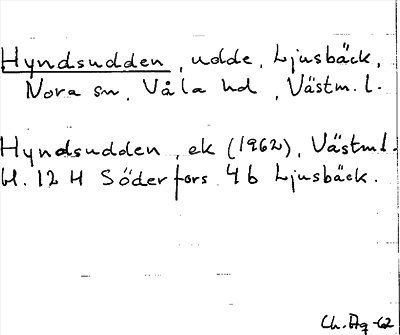 Hyndsudden, udde, Ljusbäck,
Nora sn, Våla hd, Västm. l.
Hyndsudden, ek (1962), Västml.
bl. 12 H Söderfors 4 b Ljusbäck.
Ch. Ag -62